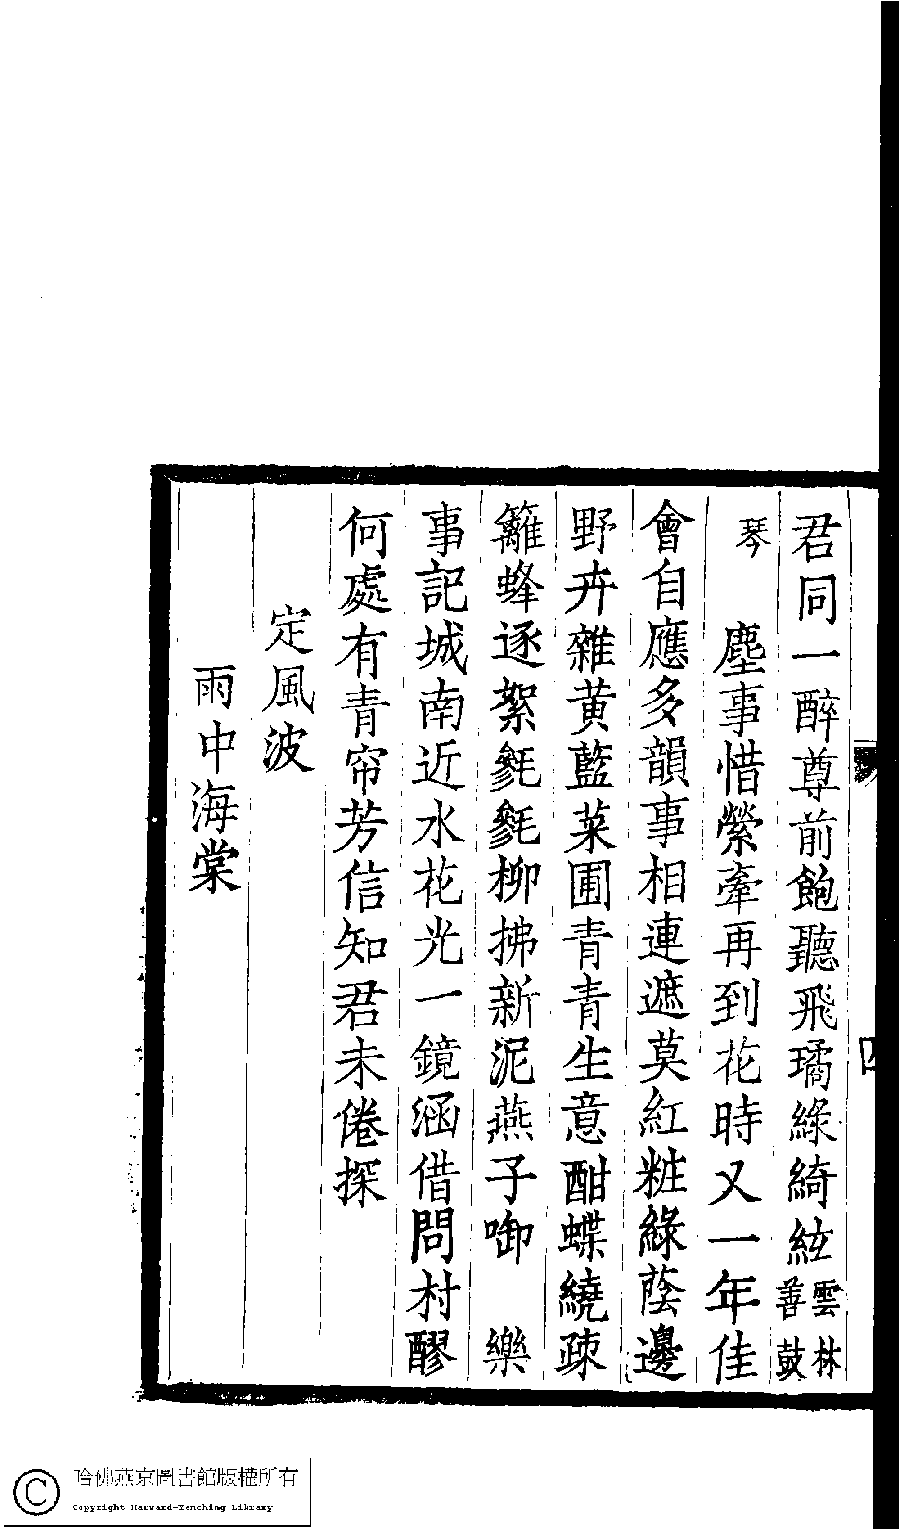 君同一醉尊前飽聽飛璚綠綺絃雲林善鼓
琴 塵事惜縈牽再到花時又一年佳
會自應多韻事相連遮莫紅粧綠蔭邊
野卉雜黃藍菜圃青青生意酣蝶繞疎
籬蜂逐絮毿毿柳拂新泥燕子啣 樂
事記城南近水花光一鏡涵借問村醪
何處有青帘芳信知君未倦探
定風波
雨中海棠
哈佛燕京圖書館版權所有
Copyright Harvard-Yenching Library